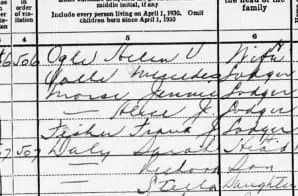 middle initial, if any
Include every person living on April 1, 1930. Omit
children born since April 1, 1930
the head of the
family
in
order
of vis-
itation
4 5 6
506 Ogle Helen V Wife
Mercedes Lodger
Morse Jennie Lodger
— Alice J. Lodger
Fisher Frank J. Lodger
507 Daly Sarah Head
— Son
— Stella Daughter